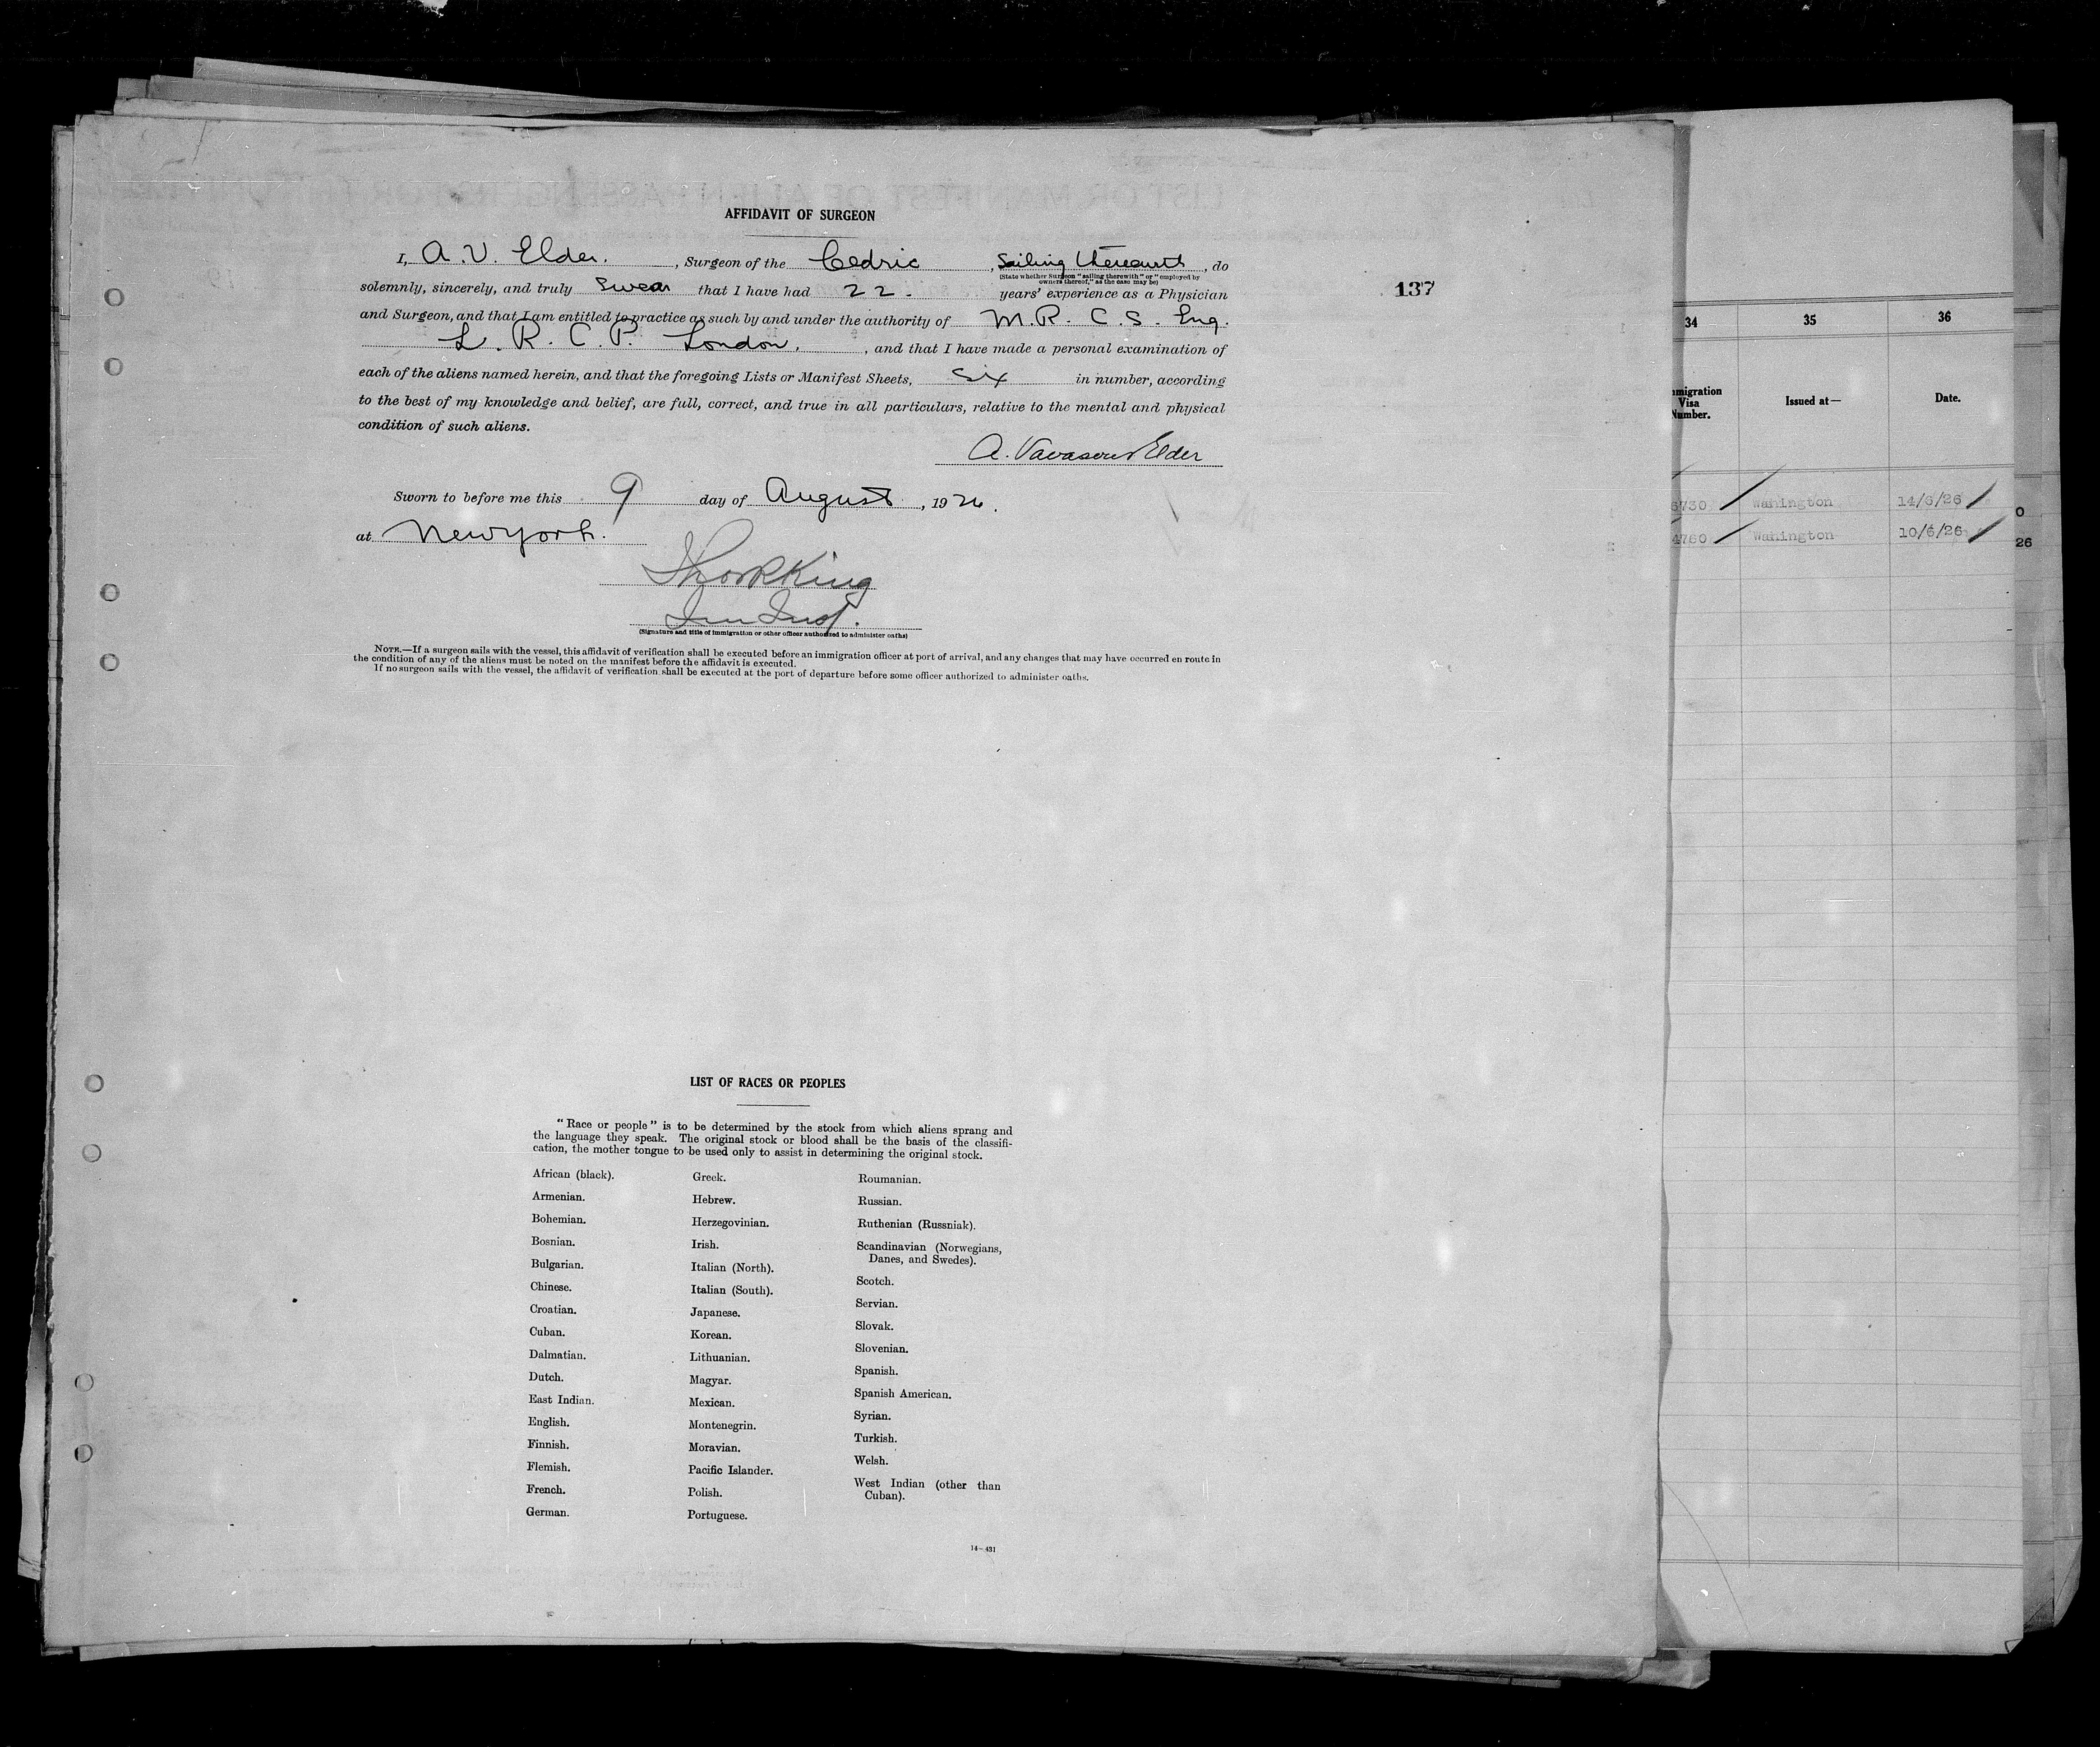 AFFIDAVIT OF SURGEON
I, A. V. Elder. , Surgeon of the Cedric , Sailing therewith , do
(State whether Surgeon "sailing therewith" or "employed by
owners thereof," as the case may be)
solemnly, sincerely, and truly swear that I have had 22. years' experience as a Physician
and Surgeon, and that I am entitled to practice as such by and under the authority of M. R. C. S. Eng.
L. R. C. P. London. , and that I have made a personal examination of
each of the aliens named herein, and that the foregoing Lists or Manifest Sheets, Six in number, according
to the best of my knowledge and belief, are full, correct, and true in all particulars, relative to the mental and physical
condition of such aliens.
A. Vavasour Elder
Sworn to before me this 9 day of August , 1926.
at New York.
King
Imm Insp.
(Signature and title of immigration or other officer authorized to administer oaths)
NOTE.—If a surgeon sails with the vessel, this affidavit of verification shall be executed before an immigration officer at port of arrival, and any changes that may have occurred en route in
the condition of any of the aliens must be noted on the manifest before the affidavit is executed.
If no surgeon sails with the vessel, the affidavit of verification shall be executed at the port of departure before some officer authorized to administer oaths.
137
LIST OF RACES OR PEOPLES
"Race or people" is to be determined by the stock from which aliens sprang and
the language they speak. The original stock or blood shall be the basis of the classifi-
cation, the mother tongue to be used only to assist in determining the original stock.
African (black).
Armenian.
Bohemian.
Bosnian.
Bulgarian.
Chinese.
Croatian.
Cuban.
Dalmatian.
Dutch.
East Indian.
English.
Finnish.
Flemish.
French.
German.
Greek.
Hebrew.
Herzegovinian.
Irish.
Italian (North).
Italian (South).
Japanese.
Korean.
Lithuanian.
Magyar.
Mexican.
Montenegrin.
Moravian.
Pacific Islander.
Polish.
Portuguese.
Roumanian.
Russian.
Ruthenian (Russniak).
Scandinavian (Norwegians,
Danes, and Swedes).
Scotch.
Servian.
Slovak.
Slovenian.
Spanish.
Spanish American.
Syrian.
Turkish.
Welsh.
West Indian (other than
Cuban).
14—431
34 35 36
mmigration
Visa
Number.
Issued at—
Date.
6730 Wahington 14/6/26 0
4760 Wahington 10/6/26 26